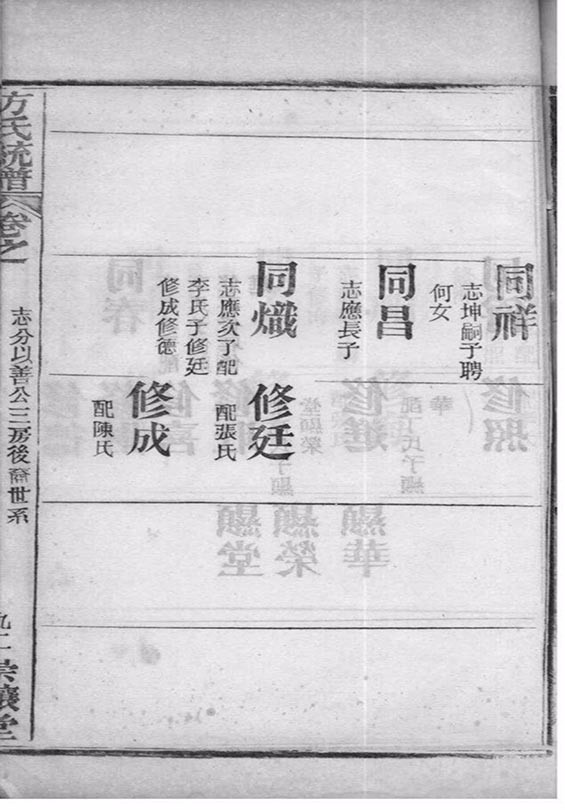 同祥
志坤嗣子聘
何女
同昌
志應長子
同熾
志應次子配
李氏子修廷
修成修德
修廷
配張氏
修成
配陳氏
志分以善公三房後裔世系
方氏統譜
卷之一